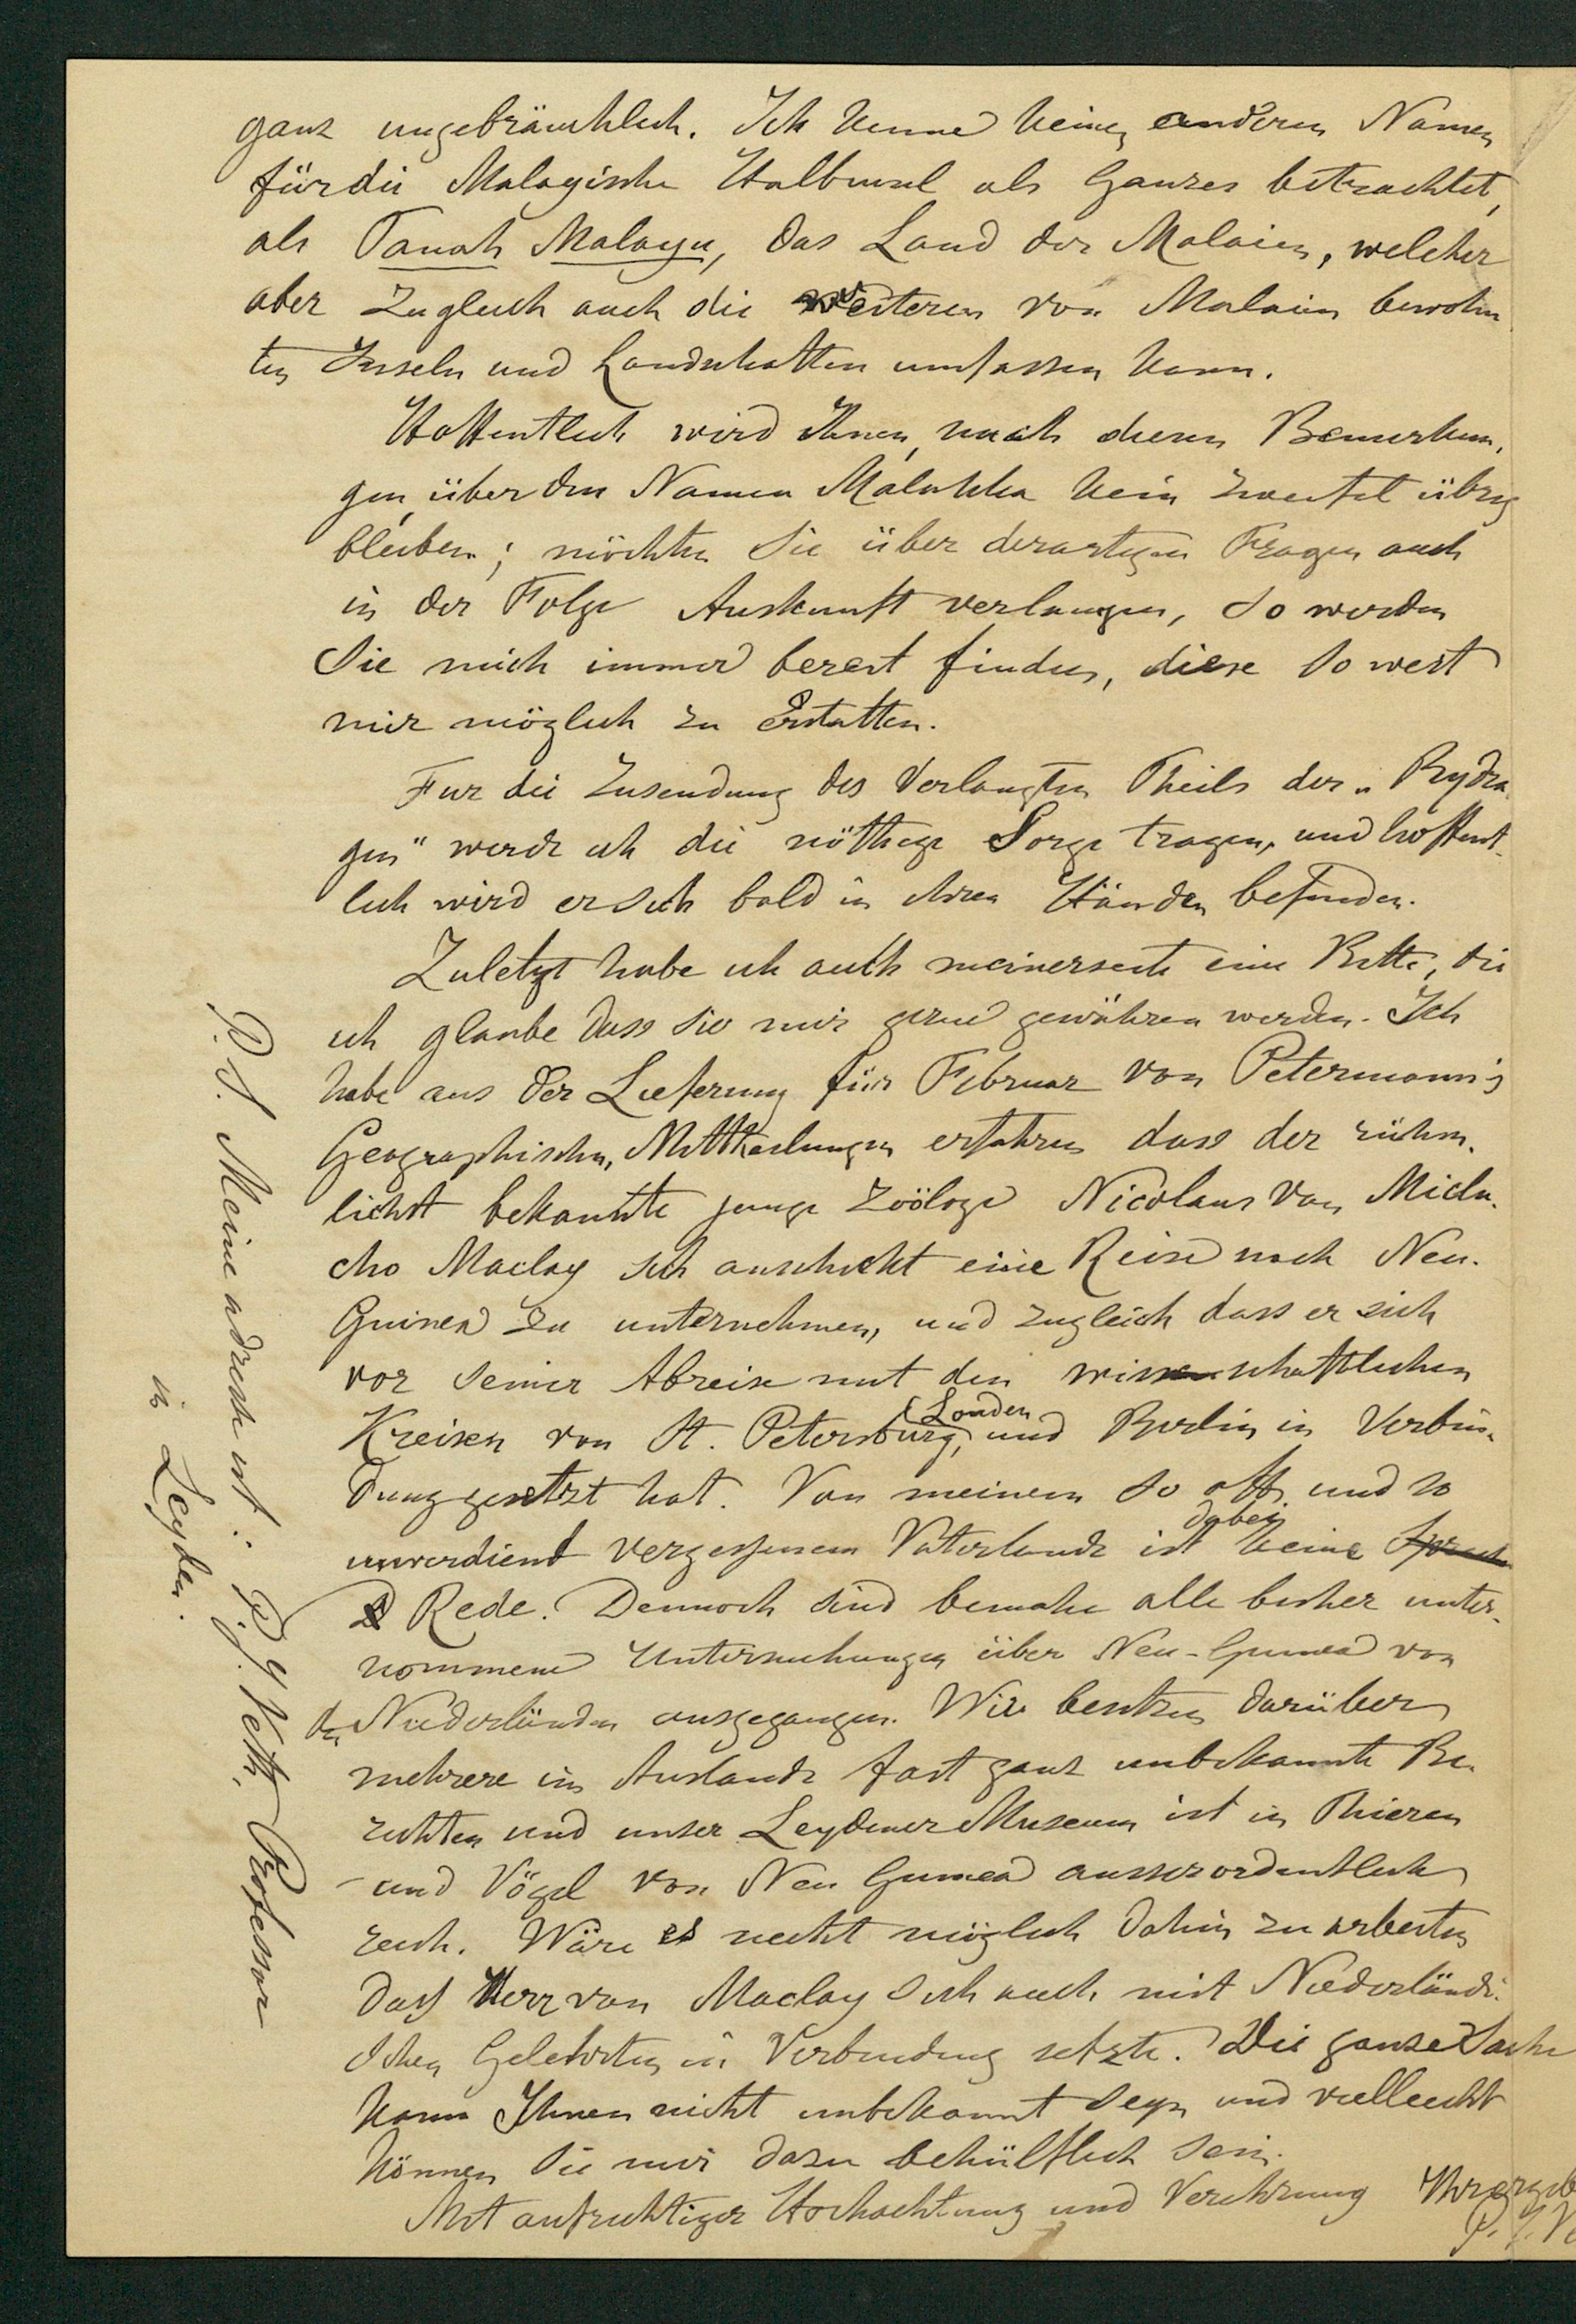 ganz ungebräuchlich. Ich kenne keinen anderen Namen
für die Malayische Halbinsel als Ganzes betrachtet,
als Tanah Malayu, das Land der Malaien, welcher
aber zugleich auch die weiteren von Malaien bewohn
ten Inseln und Landschaften umfassen kann.
Hoffentlich wird Ihnen, nach diesen Bemerkun-
gen, über den Namen Malakka kein Zweifel übrig
bleiben; möchten Sie über derartigen Fragen auch
in der Folge Auskunft verlangen, so werden
Sie mich immer bereit finden, diese so weit
mir möglich zu Erstatten.
Fur die Zusendung des Verlangten Theils der „Bydra-
gen" werde ich die nöthige Sorge tragen, und hoffent-
lich wird er sich bald in ihren Händen befinden.
Zuletzt habe ich auch meinerseits eine Bitte, die
ich glaube dass Sie mir gerne gewähren werden. Ich
habe aus der Lieferung für Februar von Petermann's
Geographischen Mittheilungen erfahren dass der rühm-
lichst bekannte junge Zoöloge Nicolaus von Miclu-
cho Maclay sich anschickt eine Reise nach Neu-
Guinea zu unternehmen, und zugleich dass er sich
vor seiner Abreise mit den wissenschaftlichen
Kreisen von St. Petersburg, (London und Berlin in Verbin-
dung gesetzt hat. Von meinem so oft und so
unverdient vergessenem Vaterlande ist dabei keine Sprach
Rede. Dennoch sind beinahe alle bisher unter-
nommene Untersuchungen über Neu-Guinea von
den Niederlanden ausgegangen. Wir besitzen darüber
mehrere im Auslande fast ganz unbekannte Be-
richten und unser Leydener Museum ist in Thieren
und Vögel von Neu Guinea ausserordentlich
reich. Wäre es nicht möglich dahin zu arbeiten
dass Herr von Maclay sich auch mit Niederländi-
schen Gelehrten in Verbindung setzte. Die ganze Sache
kann Ihnen nicht unbekannt seyn und vielleicht
können Sie mir dazu behülflich sein.
Mit aufrichtiger Hochachtung und Verehrung Ihr ergeb
P. J. Ve
P.S. Meine adresse ist: P. J. Veth, Professor
in Leyden.